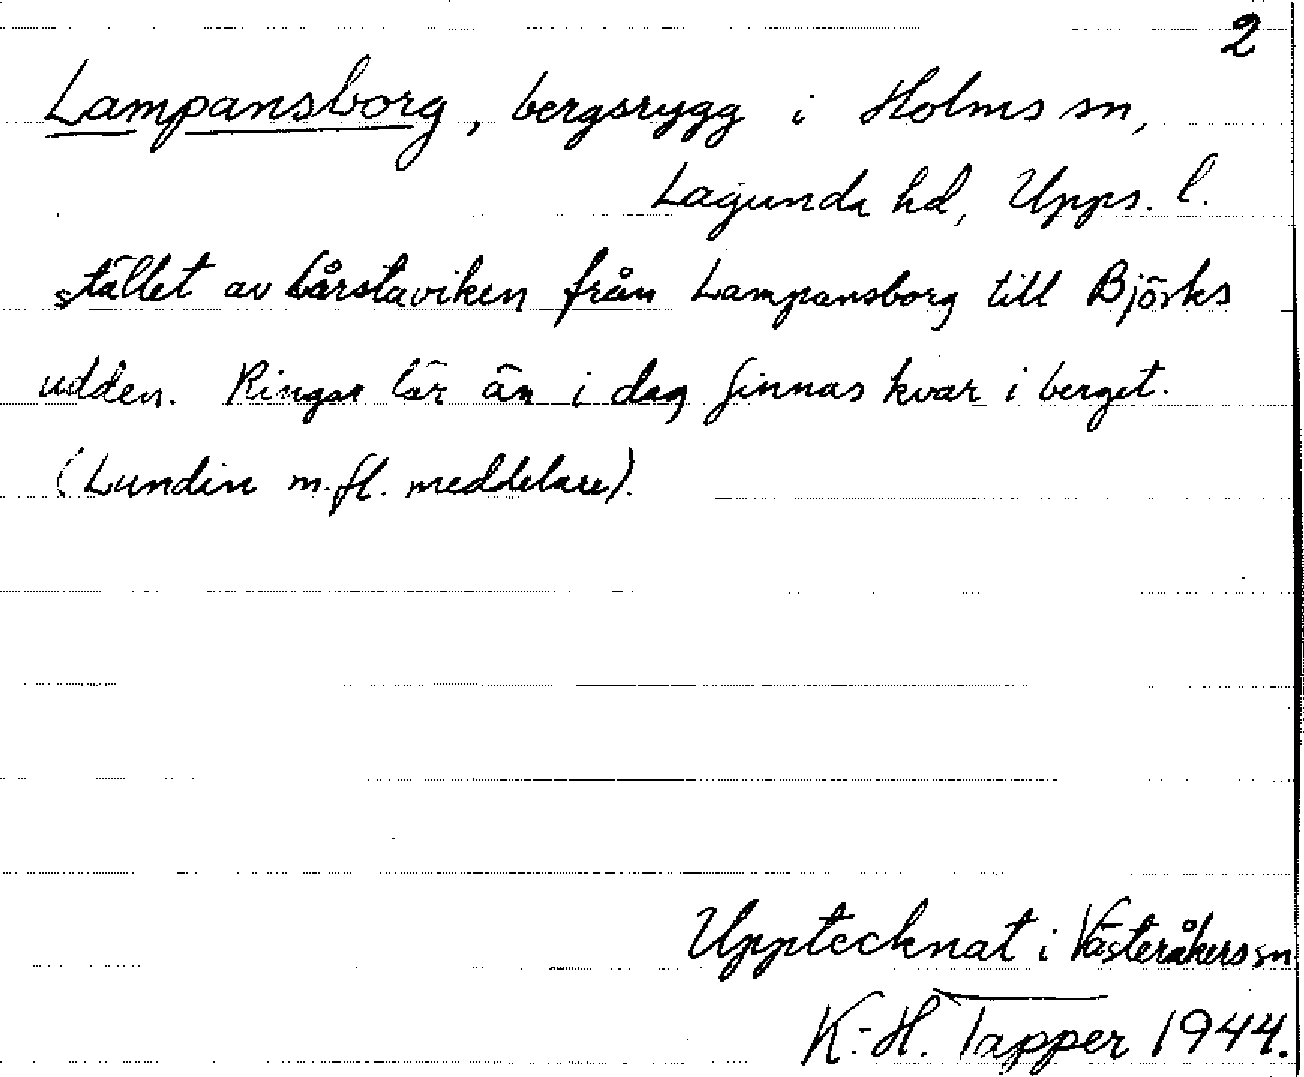 2
Lampansborg, bergsrygg i Holms sn,
Lagunda hd, Upps. l.
stället av Lårstaviken från Lampansborg till Björks
udden. Ringar lär än i dag finnas kvar i berget.
(Lundin m.fl. meddelare).
Upptecknat i Västeråkers sn
K.-H. Tapper 1944.